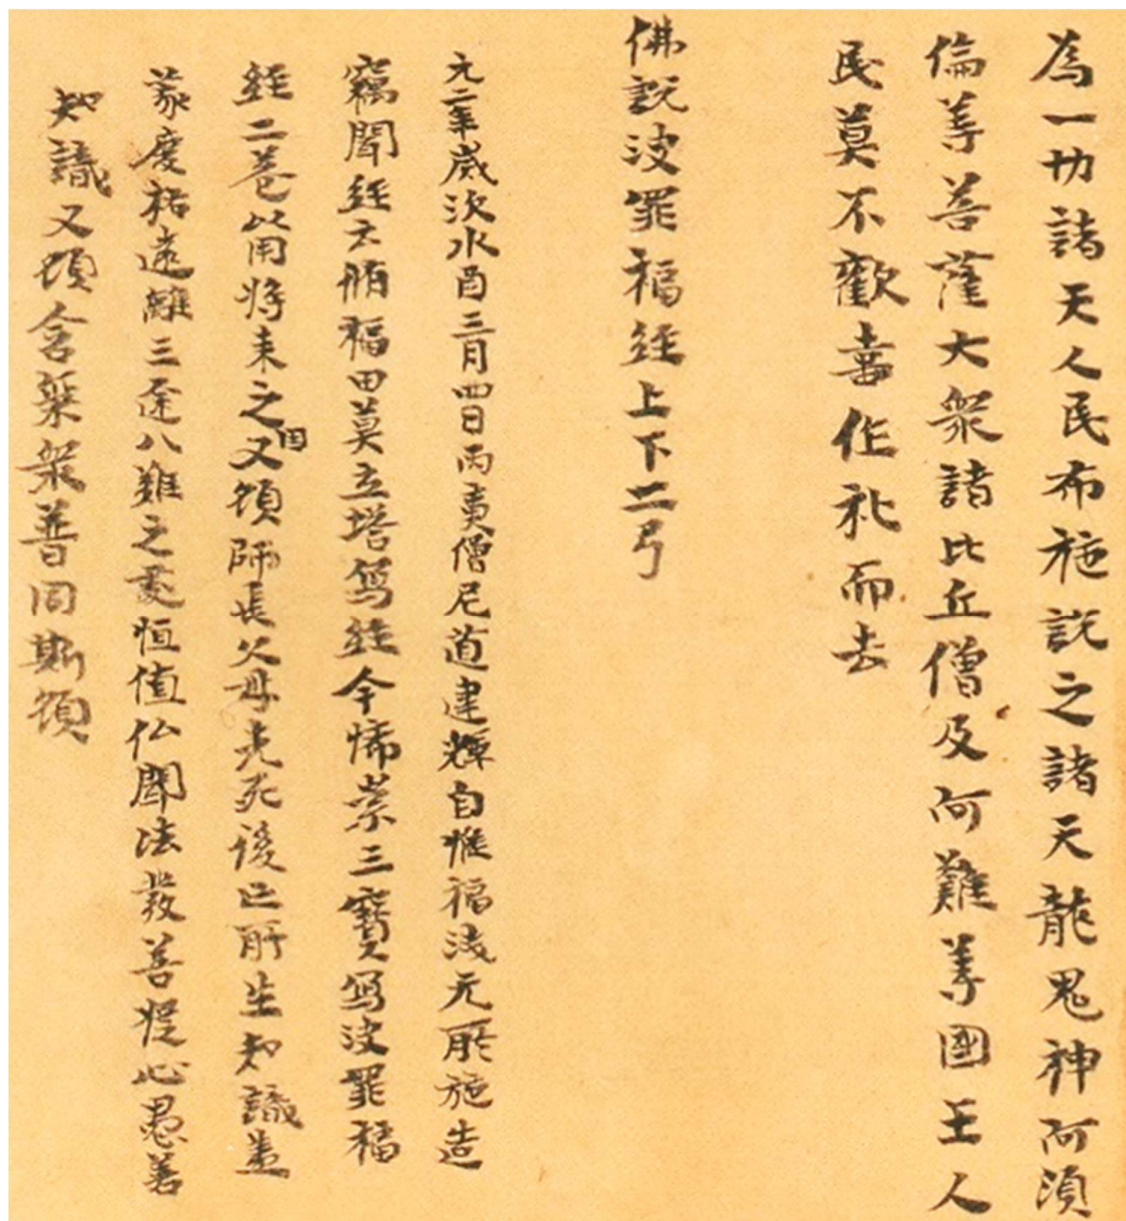 為一切諸天人民布施說之諸天龍鬼神阿須
倫等菩薩大衆諸比丘僧及阿難等國王人
民莫不歡喜作礼而去
佛說決罪福經上下二弓
元二年歲次水酉三月四日丙寅僧尼道建輝自惟福淺无所施造
竊聞經云脩福田莫立塔寫經今怖崇三寶寫決罪福
經二卷以用將来之因又願師長父母先死後亡所生知識盡
蒙度祐遠離三途八難之處恒值仏聞法發善提心愚善
知識又願含榮衆普同斯願